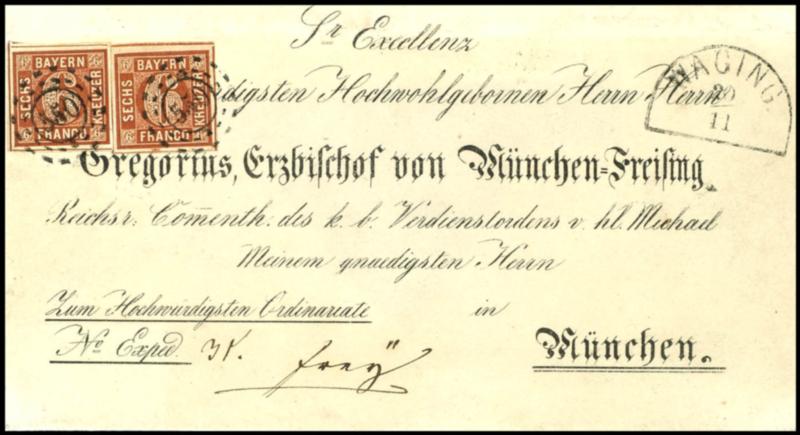 Sr Excellenz
BAYERN
SECHS
KREUZER
FRANCO
6
BAYERN
SECHS
KREUZER
FRANCO
6
WAGING
20
11
digsten Hochwohlgebornen Herrn Herrn
Gregorius, Erzbischof von München=Freising
Reichsr: Com̄enth: des k. b. Verdienstordens v. hl. Michael
Meinem gnaedigsten Herrn
Zum Hochwürdigsten Ordinariate in
No Exped.
frey
München.